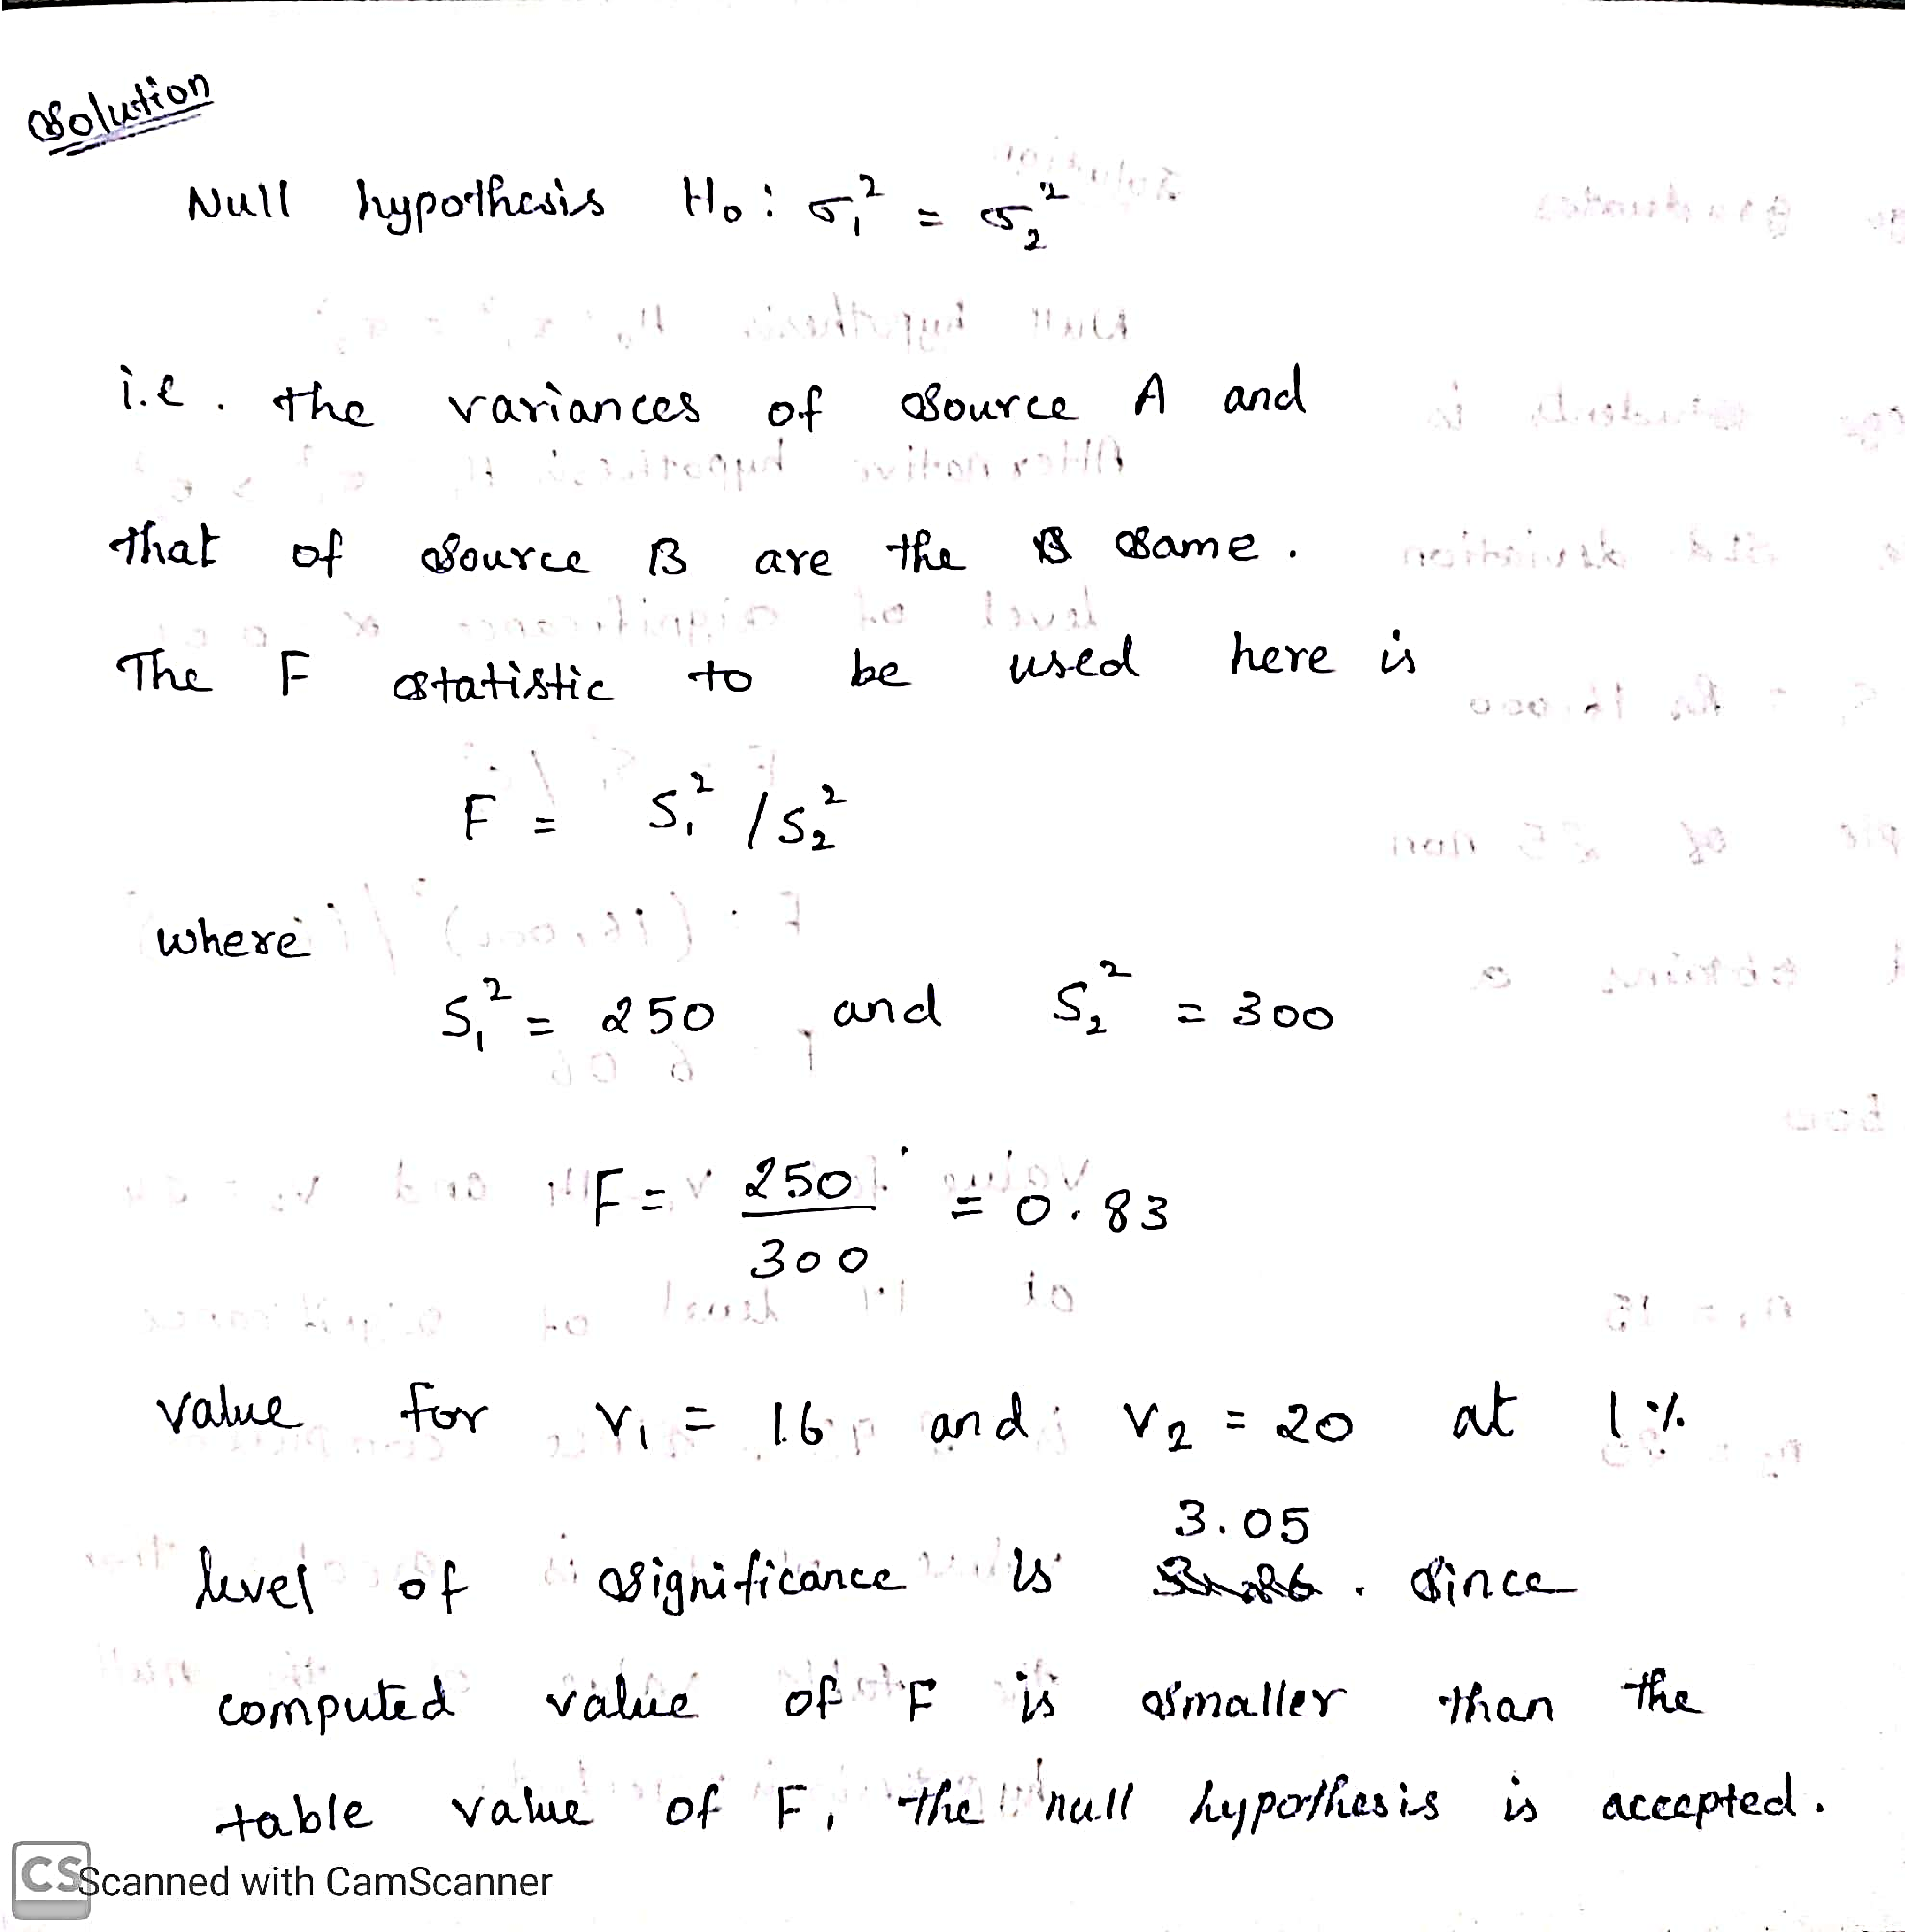 Solution
Null hypothesis H₀: σ₁² = σ₂²
i.e. the variances of source A and
that of source B are the same.
The F statistic to be used here is
F = S₁² / S₂²
where
S₁² = 250 and S₂² = 300
F = 250/300 = 0.83
value for V₁ = 16 and V₂ = 20 at 1%
3.05
level of significance is . Since
computed value of F is smaller than the
table value of F, the null hypothesis is accepted.
CS Scanned with CamScanner